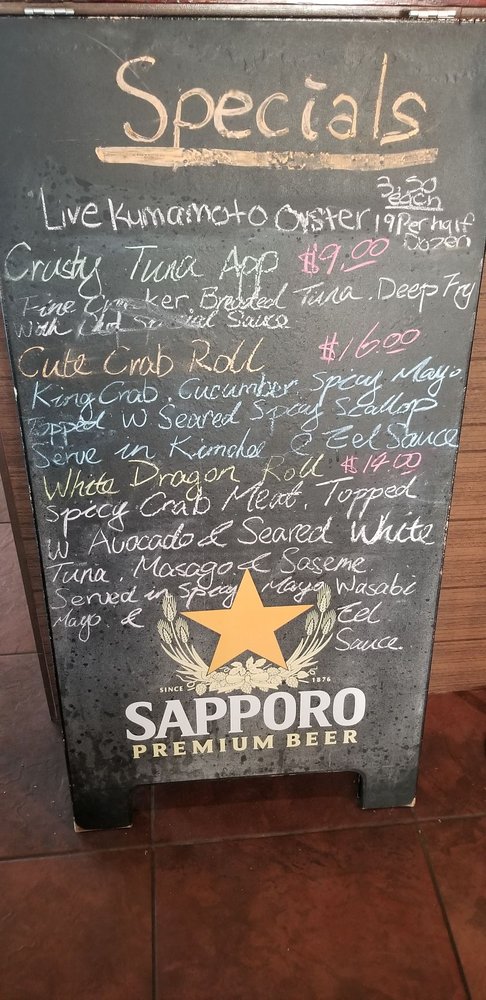 Specials
Live Kumamoto Oyster 3.50 each 19 Per half Dozen
Crusty Tuna App $9.00
Fine Cracker Breaded Tuna. Deep Fry
With Special Sauce
Cute Crab Roll $16.00
King Crab. Cucumber. Spicy Mayo.
Topped W Seared Spicy Scallop
Serve in Kimchee & Eel Sauce
White Dragon Roll $14.00
Spicy Crab Meat. Topped
W Avocado & Seared White
Tuna. Masago & Saseme.
Served in Spicy Mayo Wasabi
Mayo & Eel
Sauce.
SINCE 1876
SAPPORO
PREMIUM BEER